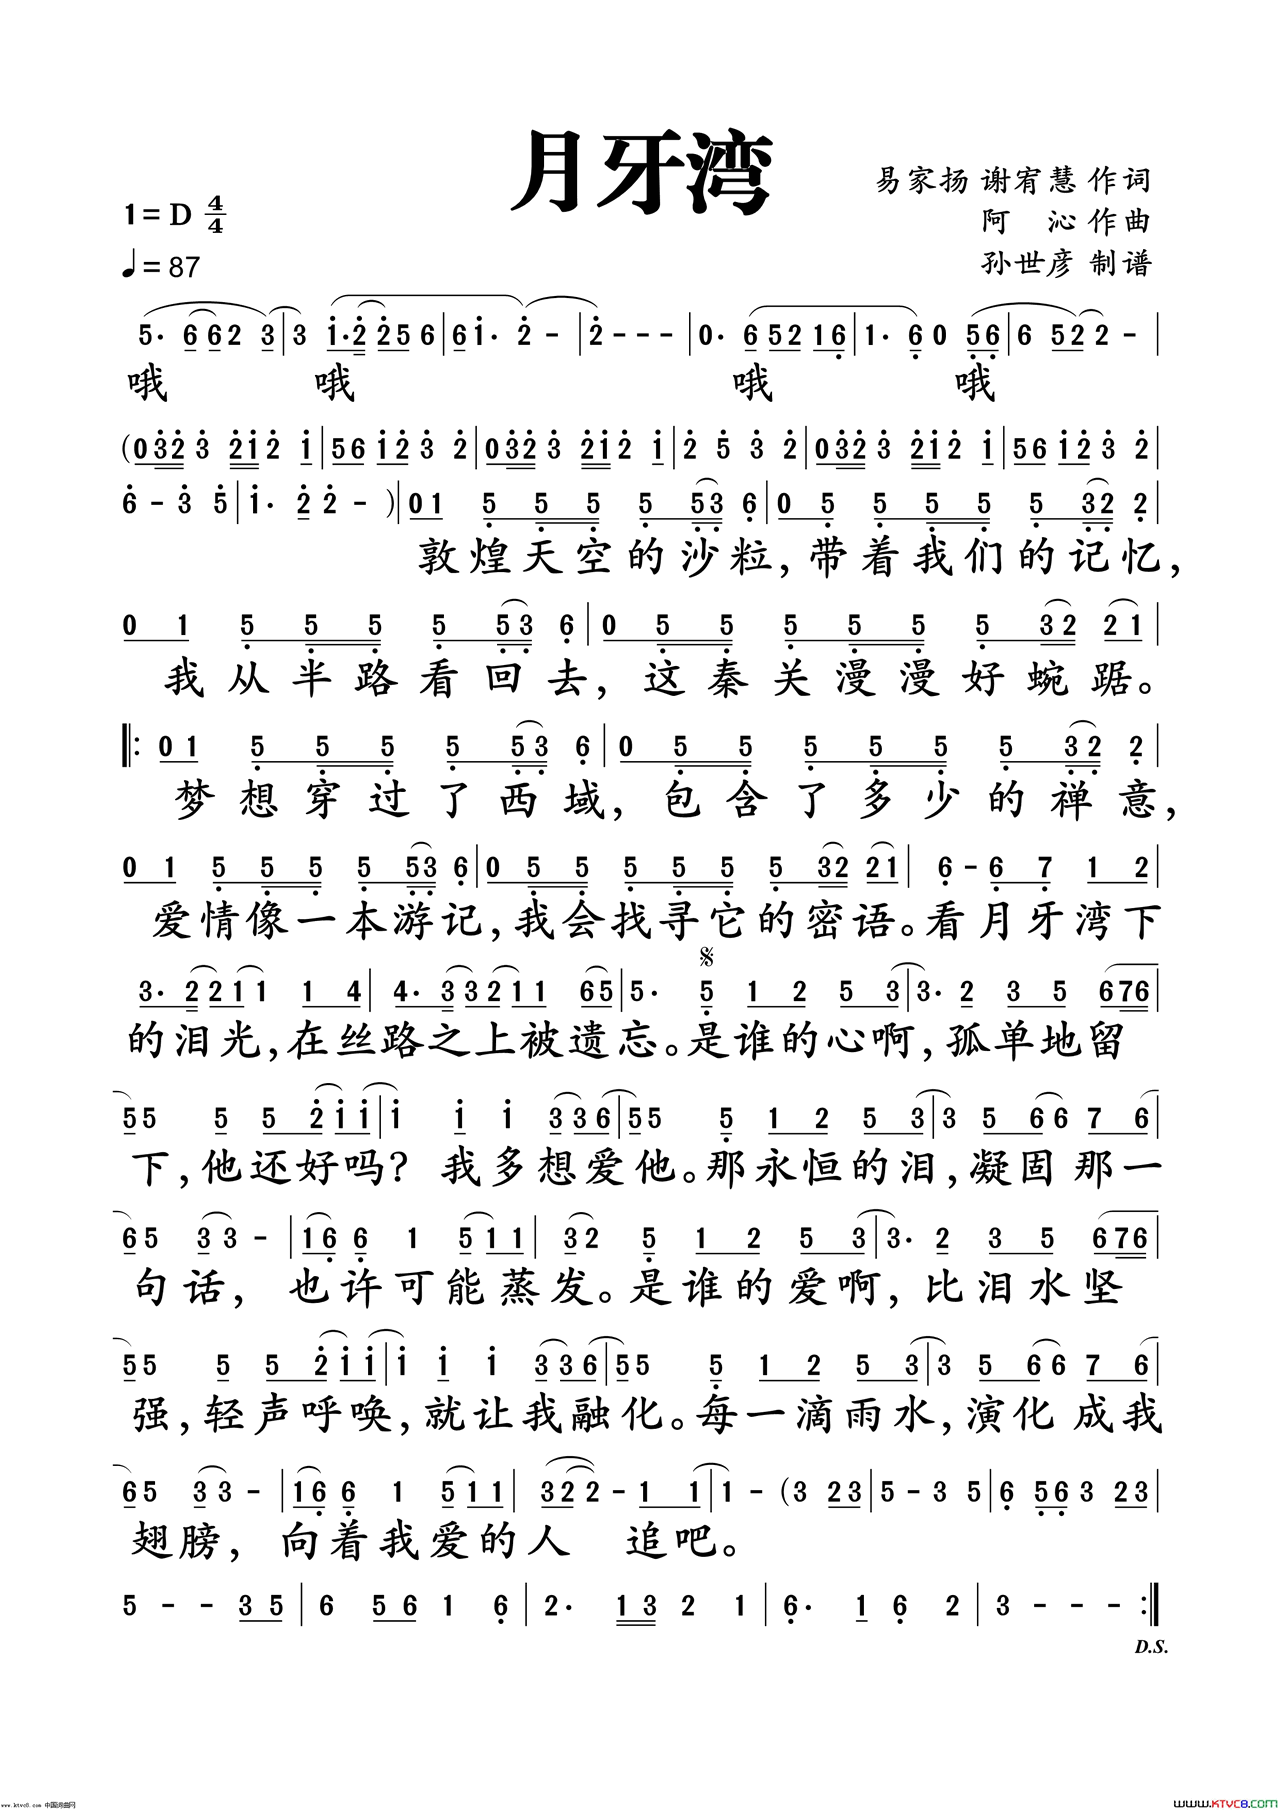 月牙湾
易家扬 谢宥慧 作词
1=D 4/4
阿 沁 作曲
♩=87
孙世彦 制谱
5· 6 6 2 3 | 3 1·2 2 5 6 | 6 1· 2 - | 2 - - - | 0· 6 5 2 1 6 | 1· 6 0 5 6 | 6 5 2 2 - |
哦 哦 哦 哦
(0 3 2 3 2 1 2 1 | 5 6 1 2 3 2 | 0 3 2 3 2 1 2 1 | 2 5 3 2 | 0 3 2 3 2 1 2 1 | 5 6 1 2 3 2 |
6 - 3 5 | 1· 2 2 - ) | 0 1 5 5 5 5 5 3 6 | 0 5 5 5 5 5 3 2 2 |
敦煌天空的沙粒,带着我们的记忆,
0 1 5 5 5 5 5 3 6 | 0 5 5 5 5 5 5 3 2 2 1 |
我从半路看回去,这秦关漫漫好蜿踞。
‖: 0 1 5 5 5 5 5 3 6 | 0 5 5 5 5 5 5 3 2 2 |
梦想穿过了西域,包含了多少的禅意,
0 1 5 5 5 5 5 3 6 | 0 5 5 5 5 5 5 3 2 2 1 | 6 - 6 7 1 2 |
爱情像一本游记,我会找寻它的密语。看月牙湾下
3· 2 2 1 1 1 4 | 4· 3 3 2 1 1 6 5 | 5· 5 1 2 5 3 | 3· 2 3 5 6 7 6 |
的泪光,在丝路之上被遗忘。是谁的心啊,孤单地留
5 5 5 5 2 1 1 | 1 1 1 3 3 6 | 5 5 5 1 2 5 3 | 3 5 6 6 7 6 |
下,他还好吗?我多想爱他。那永恒的泪,凝固那一
6 5 3 3 - | 1 6 6 1 5 1 1 | 3 2 5 1 2 5 3 | 3· 2 3 5 6 7 6 |
句话,也许可能蒸发。是谁的爱啊,比泪水坚
5 5 5 5 2 1 1 | 1 1 1 3 3 6 | 5 5 5 1 2 5 3 | 3 5 6 6 7 6 |
强,轻声呼唤,就让我融化。每一滴雨水,演化成我
6 5 3 3 - | 1 6 6 1 5 1 1 | 3 2 2 - 1 1 | 1 - (3 2 3 | 5 - 3 5 | 6 5 6 3 2 3 |
翅膀,向着我爱的人 追吧。
5 - - 3 5 | 6 5 6 1 6 | 2· 1 3 2 1 | 6· 1 6 2 | 3 - - - :‖
D.S.
www.ktvc8.com 中国词曲网
WWW.KTVC8.COM